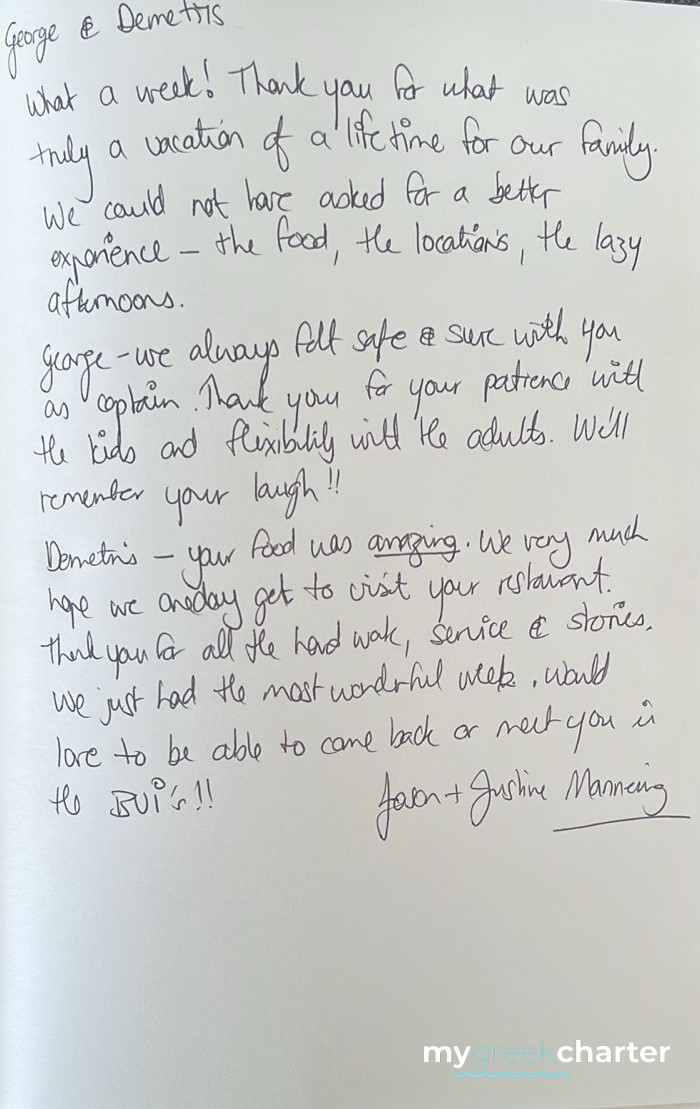 George & Demetris
What a week! Thank you for what was
truly a vacation of a lifetime for our family.
We could not have asked for a better
experience – the food, the locations, the lazy
afternoons.
George – we always felt safe & sure with you
as captain. Thank you for your patience with
the kids and flexibility with the adults. We'll
remember your laugh!!
Demetris – your food was amazing. We very much
hope we oneday get to visit your restaurant.
Thank you for all the hard work, service & stories.
We just had the most wonderful week. Would
love to be able to come back or meet you in
the BVI's!!
Jason + Justine Manneing
mygreekcharter